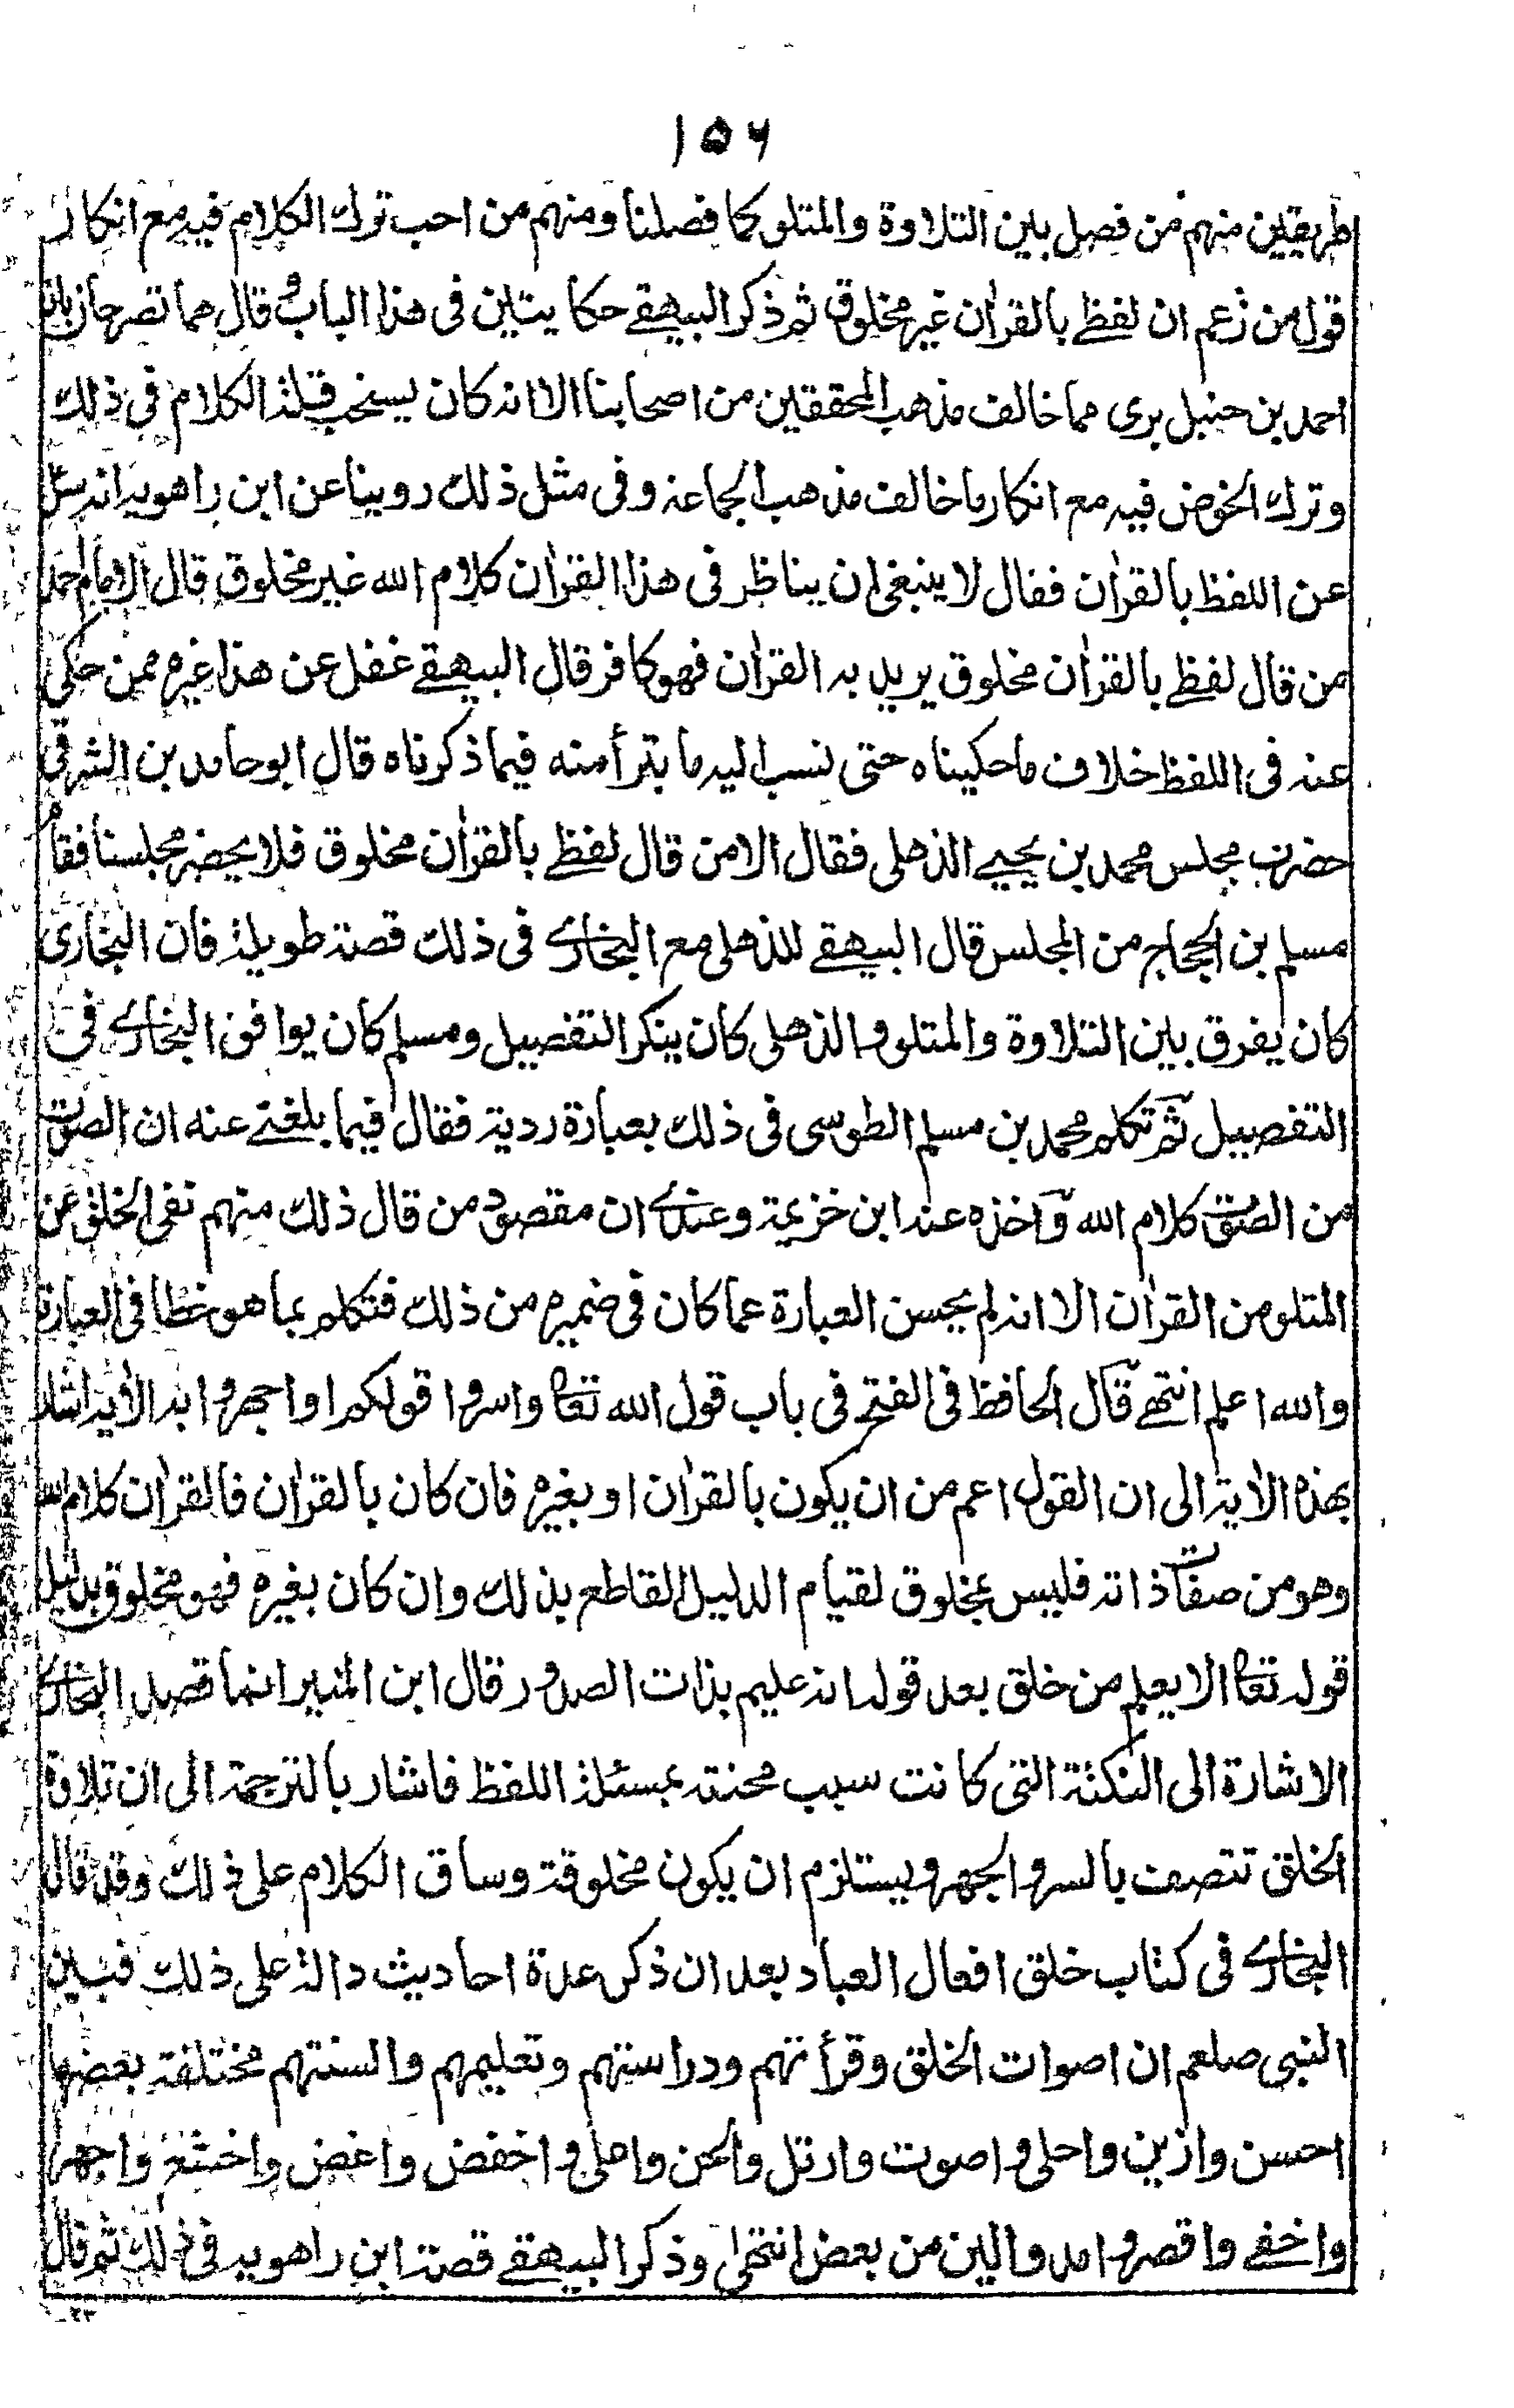 ١٥٦
طريقين منهم من فصل بين التلاوة والمتلو كما فصلنا ومنهم من احب ترك الكلام فيه مع انكار
قول من زعم ان لفظي بالقراٰن غير مخلوق ثم ذكر البيهقے حكايتين فى هذا الباب وقال هما تصرحان بان
احمد بن حنبل برى مما خالف مذهب المحققين من اصحابنا الا انه كان يستحب قلة الكلام فى ذلك
وترك الخوض فيه مع انكار ما خالف مذهب الجماعة وفى مثل ذلك روينا عن ابن راهويه انه سئل
عن اللفظ بالقراٰن فقال لا ينبغى ان يناظر فى هذا القراٰن كلام الله غير مخلوق قال الامام احمد
من قال لفظے بالقراٰن مخلوق يريد به القراٰن فهو كافر قال البيهقے غفل عن هذا غيره ممن حكى
عنه فى اللفظ خلاف ما حكيناه حتى نسب اليه ما يتبرأ منه فيما ذكرناه قال ابو حامد بن الشرقى
حضرت مجلس محمد بن يحيے الذهلى فقال الا من قال لفظے بالقراٰن مخلوق فلا يحضر مجلسنا فقام
مسلم بن الحجاج من المجلس قال البيهقے للذهلى مع البخارے فى ذلك قصة طويلة فان البخارى
كان يفرق بين التلاوة والمتلو والذهلى كان ينكر التفصيل ومسلم كان يوافق البخارے فى
التفصيل ثم تكلم محمد بن مسلم الطوسى فى ذلك بعبارة ردية فقال فيما بلغنے عنه ان الصوت
من المصوت كلام الله واخذه عند ابن خزيمة وعندے ان مقصود من قال ذلك منهم نفى الخلق عن
المتلو من القراٰن الا انه لم يحسن العبارة عما كان فى ضميره من ذلك فتكلم بما هو خطا فى العبارة
والله اعلم انتهے قال الحافظ فى الفتح فى باب قول الله تعالٰى واسروا قولكم او اجهروا به الاٰية اشار
بهذه الاٰية الى ان القول اعم من ان يكون بالقراٰن او بغيره فان كان بالقراٰن فالقراٰن كلام الله
وهو من صفات ذاته فليس بمخلوق لقيام الدليل القاطع بذلك وان كان بغيره فهو مخلوق بدليل
قوله تعالٰى الا يعلم من خلق بعد قوله انه عليم بذات الصدور قال ابن المنير انما قصد البخارے
الاشارة الى النكتة التى كانت سبب محنته بمسئلة اللفظ فاشار بالترجمة الى ان تلاوة
الخلق تتصف بالسر والجهر ويستلزم ان يكون مخلوقة وساق الكلام على ذلك وقد قال
البخارے فى كتاب خلق افعال العباد بعد ان ذكر عدة احاديث دالة على ذلك فبين
النبى صلعم ان اصوات الخلق وقرأتهم ودراستهم وتعليمهم والسنتهم مختلفة بعضها
احسن وازين واحلى واصوت وارتل والحن واعلى واخفض واغض واخشع واجهر
واخفے واقصر وامد والين من بعض انتهى وذكر البيهقے قصة ابن راهويه فى ذلك ثم قال